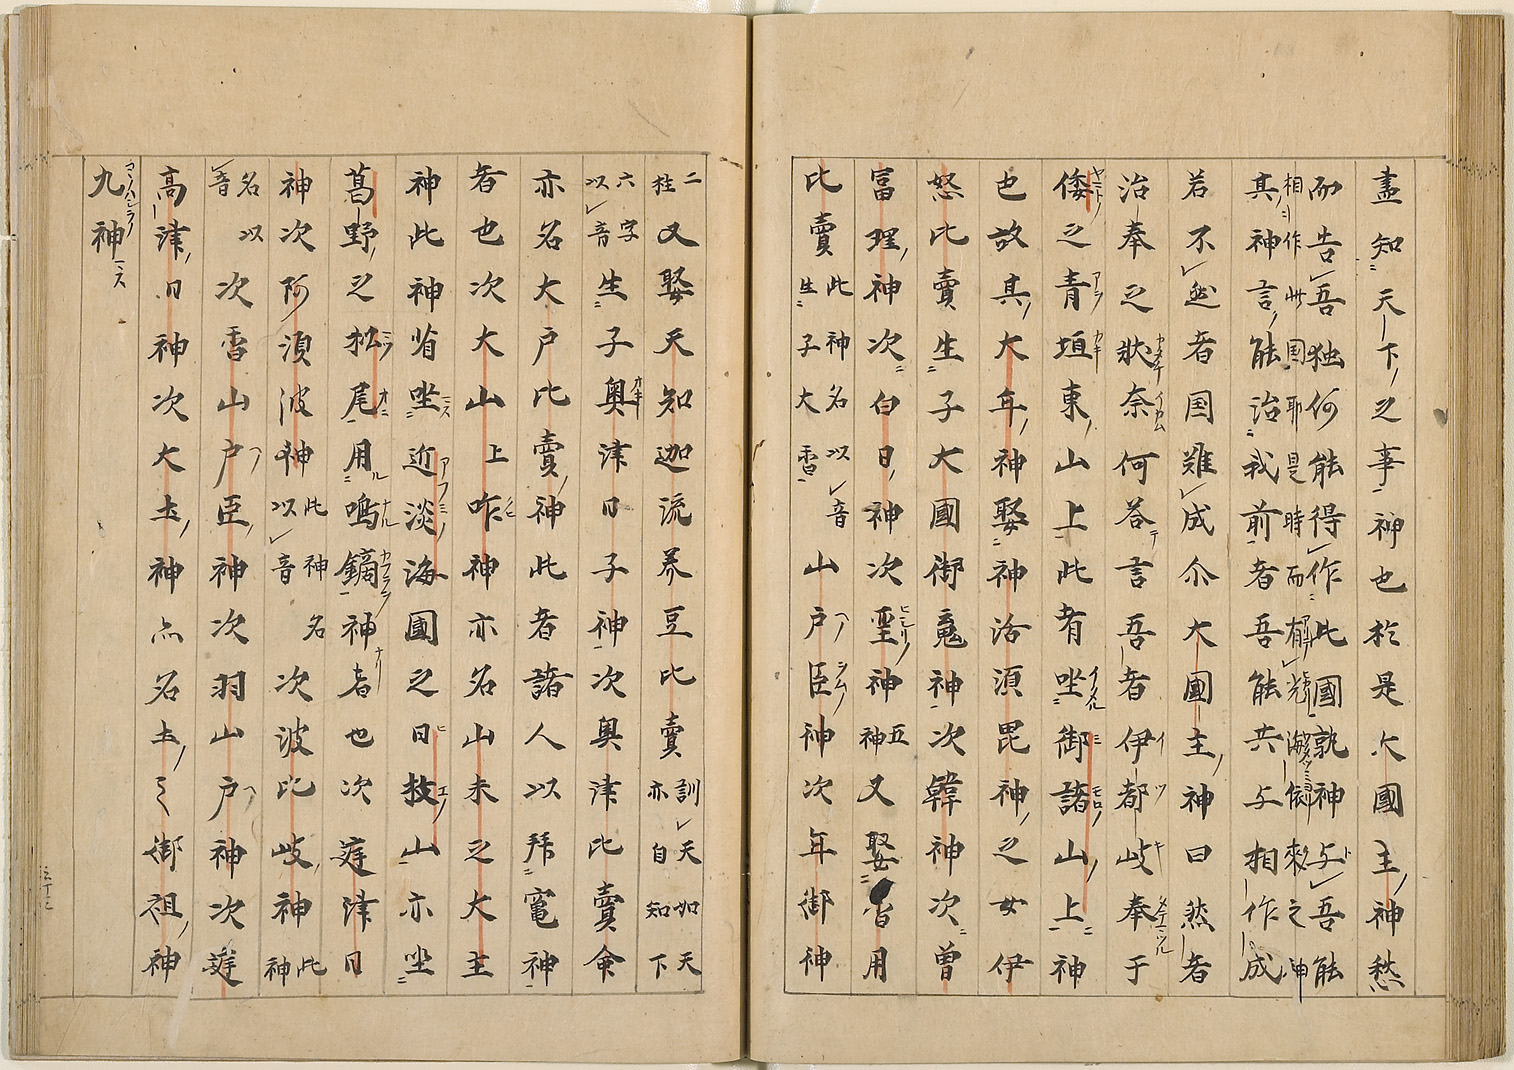 盡知天下之事神也於是大國主神愁
而告吾独何能得作此國孰神与吾能
相作此国耶是時而有光海依来之神
其神言能治我前者吾能共与相作成
若不然者国難成尒大國主神曰然者
治奉之状奈何答言吾者伊都岐奉于
倭之青垣東山上此者坐御諸山上神
也故其大年神娶神活須毘神之女伊
怒比賣生子大國御魂神次韓神次曽
富理神次白日神次聖神五神又娶香用
比賣此神名以音生子大香山戸臣神次年御神
二柱又娶天知迦流美豆比賣訓天如天亦自知下
六字以音生子奥津日子神次奥津比賣命
亦名大戸比賣神此者諸人以拜竃神
者也次大山上咋神亦名山末之大主
神此神者坐近淡海國之日枝山亦坐
葛野之松尾用鳴鏑神者也次庭津日
神次阿須波神此神名以音次波比岐神此神
名以音次香山戸臣神次羽山戸神次庭
高津日神次大土神亦名土之御祖神
九神